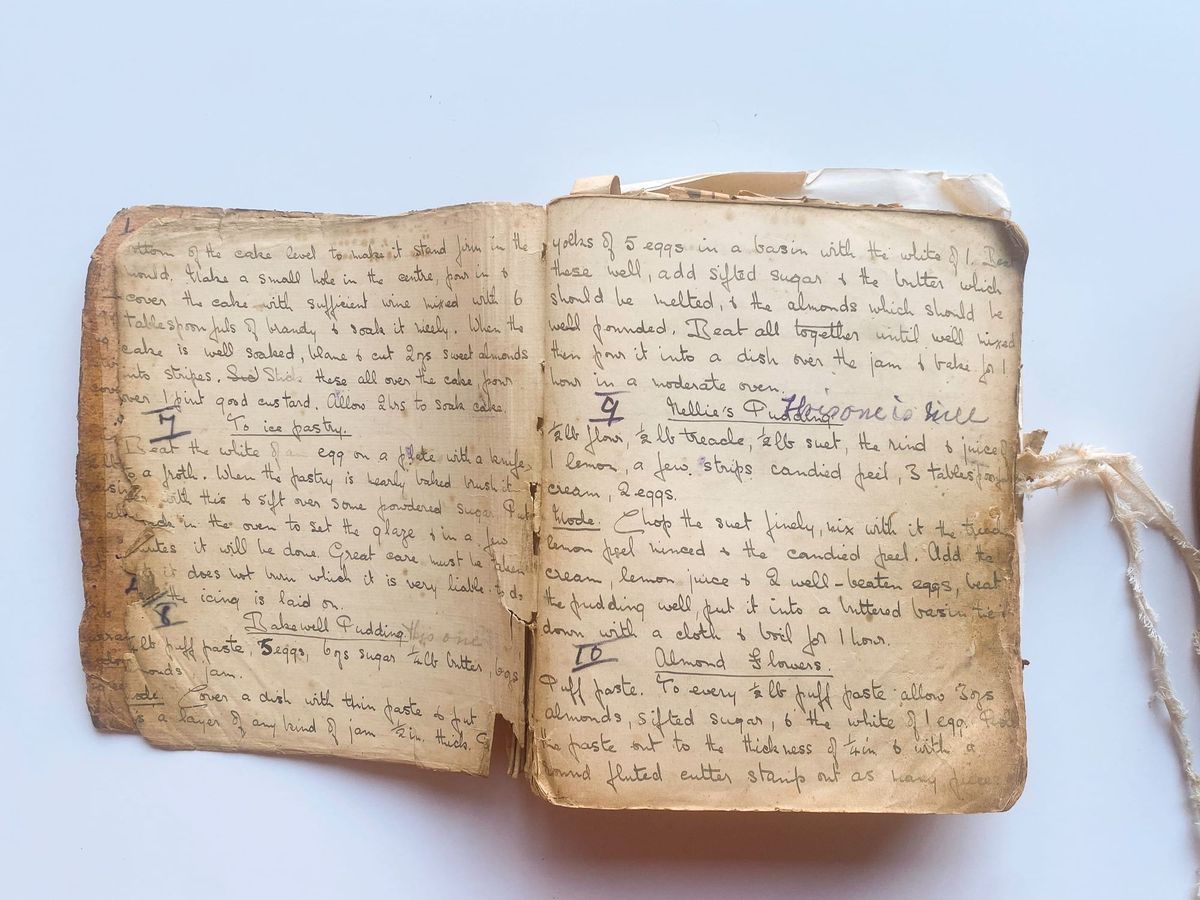 of the cake level to make it stand firm in the
mould. Make a small hole in the centre, pour in &
cover the cake with sufficient wine mixed with 6
tablespoonfuls of brandy & soak it nicely. When the
cake is well soaked, blanc & cut 2ozs sweet almonds
into stripes. Stick these all over the cake, pour
over 1 pint good custard. Allow 2hrs to soak cake.
7
To ice pastry.
Beat the white of an egg on a plate with a knife,
to a froth. When the pastry is nearly baked brush it
with this & sift over some powdered sugar. Put
in the oven to set the glaze & in a few
it will be done. Great care must be taken
it does not burn which it is very liable to do
the icing is laid on.
8
Bakewell Pudding This one
lb puff paste, 5 eggs, 6ozs sugar ¼lb butter,
jam.
Cover a dish with thin paste & put
a layer of any kind of jam ½in. thick.
yolks of 5 eggs in a basin with the white of 1. Beat
these well, add sifted sugar & the butter which
should be melted, & the almonds which should be
well pounded. Beat all together until well mixed
then pour it into a dish over the jam & bake for 1
hour in a moderate oven.
9
Nellie's Pudding This one is nice
½lb flour, ½lb treacle, ½lb suet, the rind & juice of
1 lemon, a few strips candied peel, 3 tablespoonfuls
cream, 2 eggs.
Mode. Chop the suet finely, mix with it the treacle
lemon peel minced & the candied peel. Add the
cream, lemon juice & 2 well-beaten eggs, beat
the pudding well, put it into a buttered basin tie it
down with a cloth & boil for 1 hour.
10
Almond Flowers.
Puff paste. To every ½lb puff paste allow 3ozs
almonds, sifted sugar, & the white of 1 egg. Roll
the paste out to the thickness of ¼in & with a
round fluted cutter stamp out as many pieces